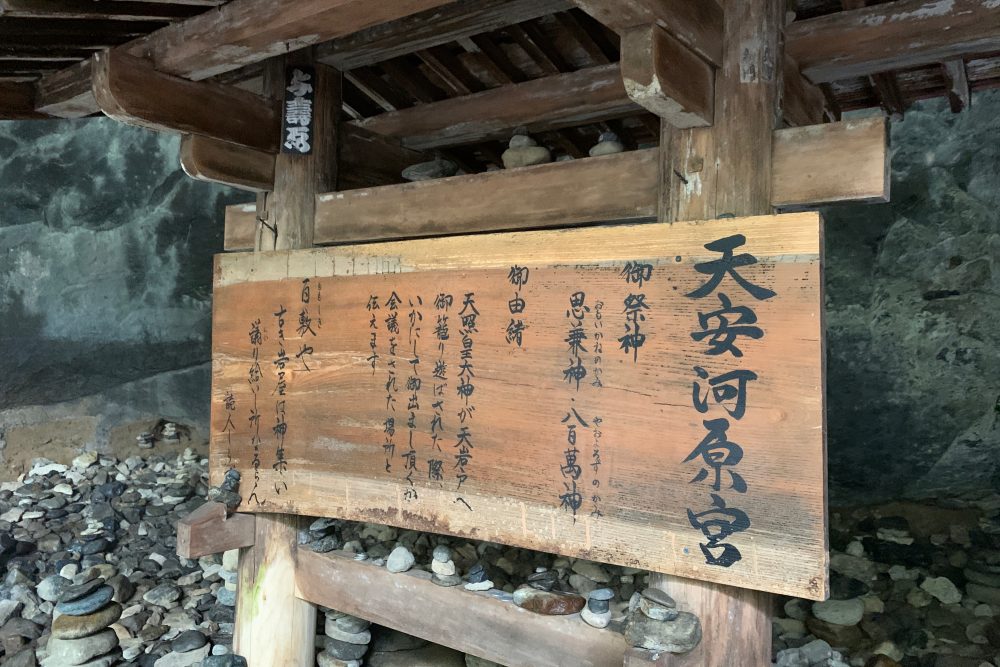 天安河原宮
御祭神
おもいかねのかみ
やおよろずのかみ
思兼神・八百萬神
御由緒
天照皇大神が天岩戸へ
御籠り遊ばされた際
いかにして御出まし頂くか
会議をされた場所と
伝えます
ももしき
百敷や
古き岩屋は神集い
議り給いし所なるらん
読人しらず